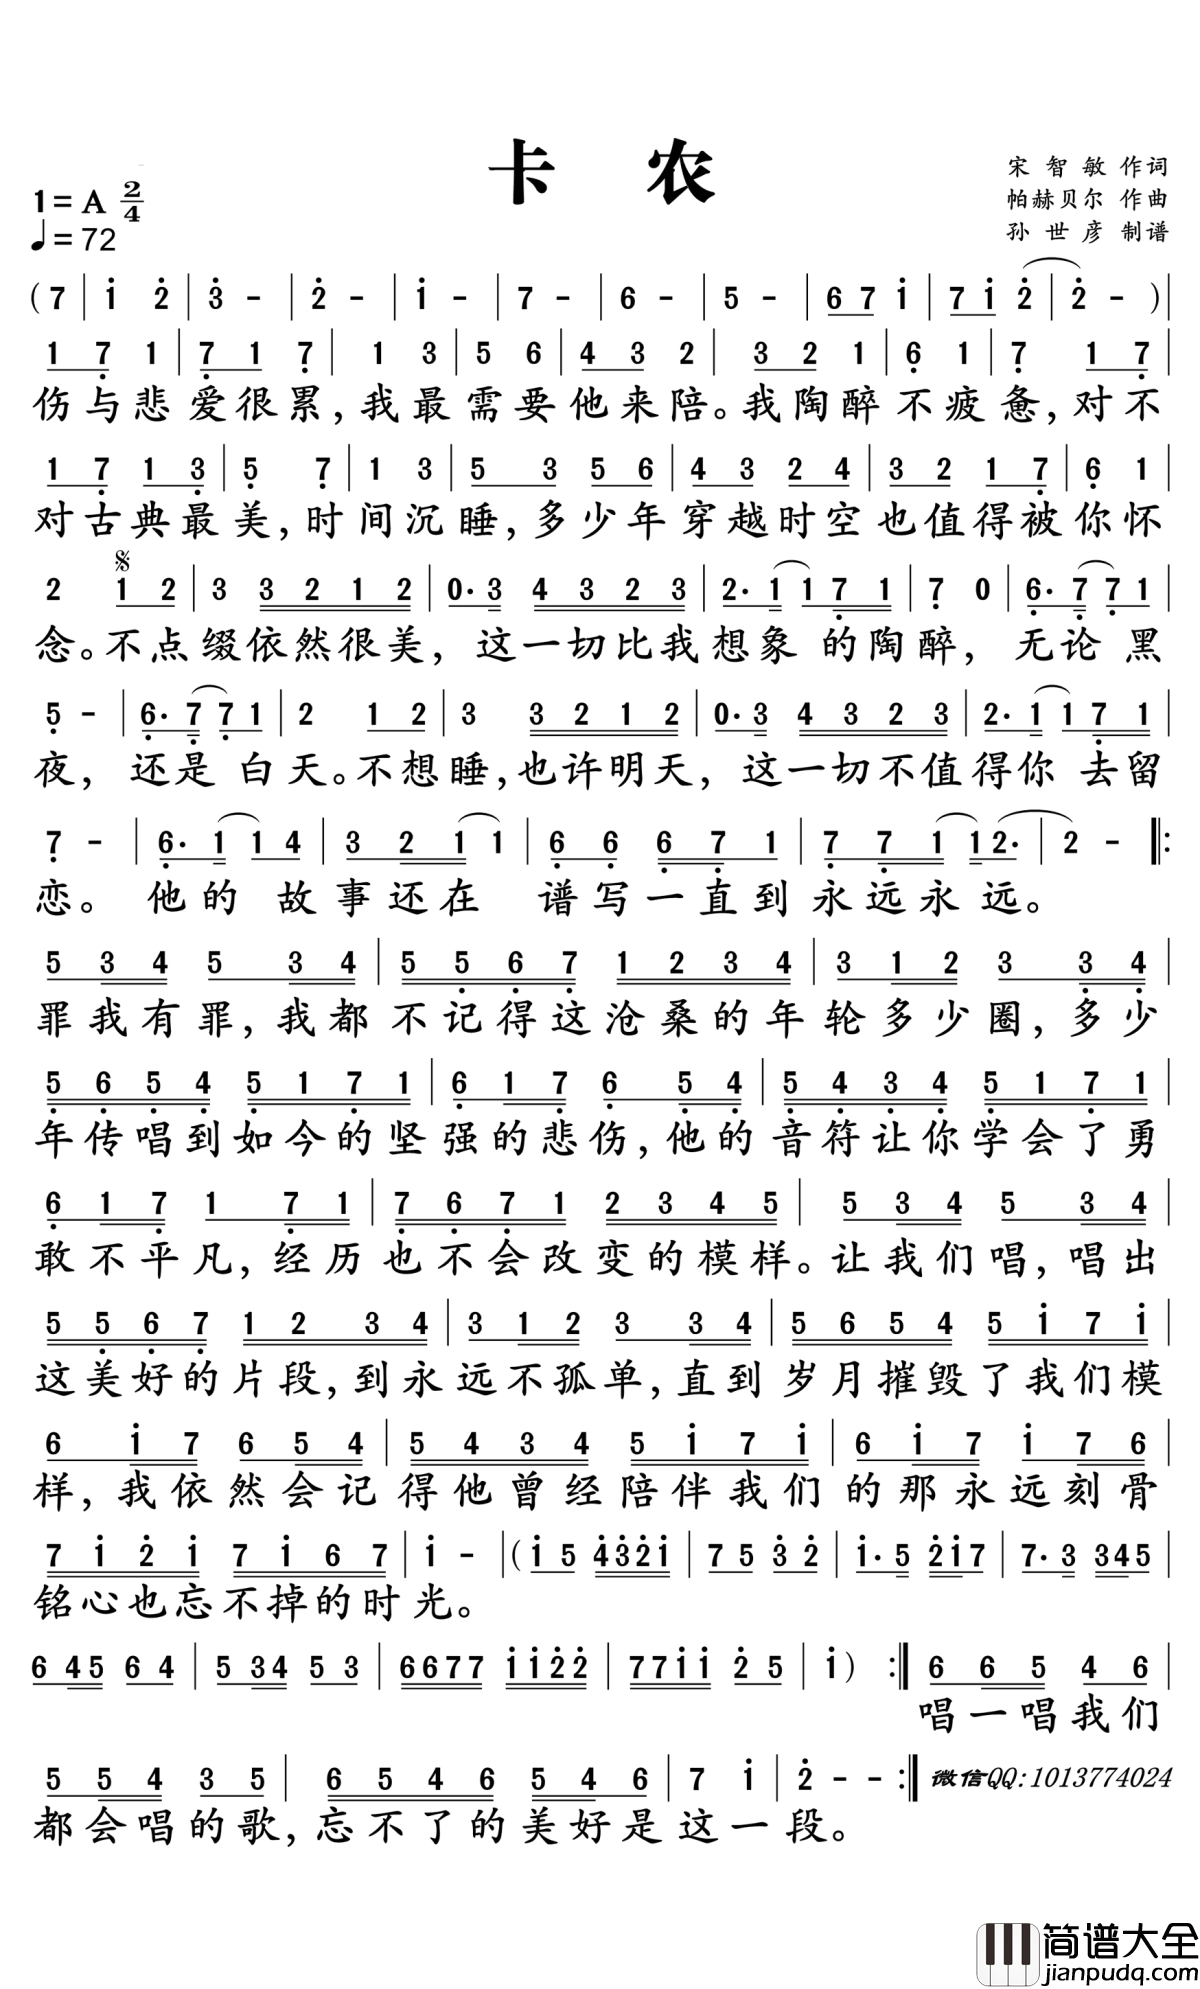 卡 农
宋智敏 作词
帕赫贝尔 作曲
孙世彦 制谱
1=A 2/4
♩=72
( 7 | i 2 | 3 - | 2 - | i - | 7 - | 6 - | 5 - | 6 7 i | 7 i 2 | 2 - ) |
1 7 1 | 7 1 7 | 1 3 | 5 6 | 4 3 2 | 3 2 1 | 6 1 | 7 1 7 |
伤与悲爱很累,我最需要他来陪。我陶醉不疲惫,对不
1 7 1 3 | 5 7 | 1 3 | 5 3 5 6 | 4 3 2 4 | 3 2 1 7 | 6 1 |
对古典最美,时间沉睡,多少年穿越时空也值得被你怀
2 1 2 | 3 3 2 1 2 | 0· 3 4 3 2 3 | 2· 1 1 7 1 | 7 0 | 6· 7 7 1 |
念。不点缀依然很美,这一切比我想象的陶醉,无论黑
5 - | 6· 7 7 1 | 2 1 2 | 3 3 2 1 2 | 0· 3 4 3 2 3 | 2· 1 1 7 1 |
夜,还是白天。不想睡,也许明天,这一切不值得你去留
7 - | 6· 1 1 4 | 3 2 1 1 | 6 6 6 7 1 | 7 7 1 1 2· | 2 - ‖:
恋。他的故事还在谱写一直到永远永远。
5 3 4 5 3 4 | 5 5 6 7 1 2 3 4 | 3 1 2 3 3 4 |
罪我有罪,我都不记得这沧桑的年轮多少圈,多少
5 6 5 4 5 1 7 1 | 6 1 7 6 5 4 | 5 4 3 4 5 1 7 1 |
年传唱到如今的坚强的悲伤,他的音符让你学会了勇
6 1 7 1 7 1 | 7 6 7 1 2 3 4 5 | 5 3 4 5 3 4 |
敢不平凡,经历也不会改变的模样。让我们唱,唱出
5 5 6 7 1 2 3 4 | 3 1 2 3 3 4 | 5 6 5 4 5 i 7 i |
这美好的片段,到永远不孤单,直到岁月摧毁了我们模
6 i 7 6 5 4 | 5 4 3 4 5 i 7 i | 6 i 7 i 7 6 |
样,我依然会记得他曾经陪伴我们的那永远刻骨
7 i 2 i 7 i 6 7 | i - | ( i 5 4 3 2 i | 7 5 3 2 | i· 5 2 i 7 | 7· 3 3 4 5 |
铭心也忘不掉的时光。
6 4 5 6 4 | 5 3 4 5 3 | 6 6 7 7 i i 2 2 | 7 7 i i 2 5 | i ) :‖ 6 6 5 4 6 |
唱一唱我们
5 5 4 3 5 | 6 5 4 6 5 4 6 | 7 i | 2 - - :‖ 微信QQ:1013774024
都会唱的歌,忘不了的美好是这一段。
简谱大全
jianpudq.com